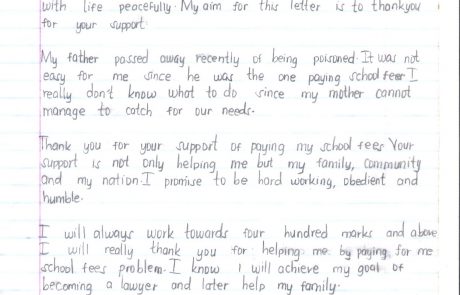 with life peacefully. My aim for this letter is to thankyou
for your support.
My father passed away recently of being poisoned. It was not
easy for me since he was the one paying school fees I
really don't know what to do since my mother cannot
manage to catch for our needs.
Thank you for your support of paying my school fees Your
support is not only helping me but my family, community
and my nation. I promise to be hard working, obedient and
humble.
I will always work towards four hundred marks and above
I will really thank you for helping me by paying for me
school fees problem. I know I will achieve my goal of
becoming a lawyer and later help my family.